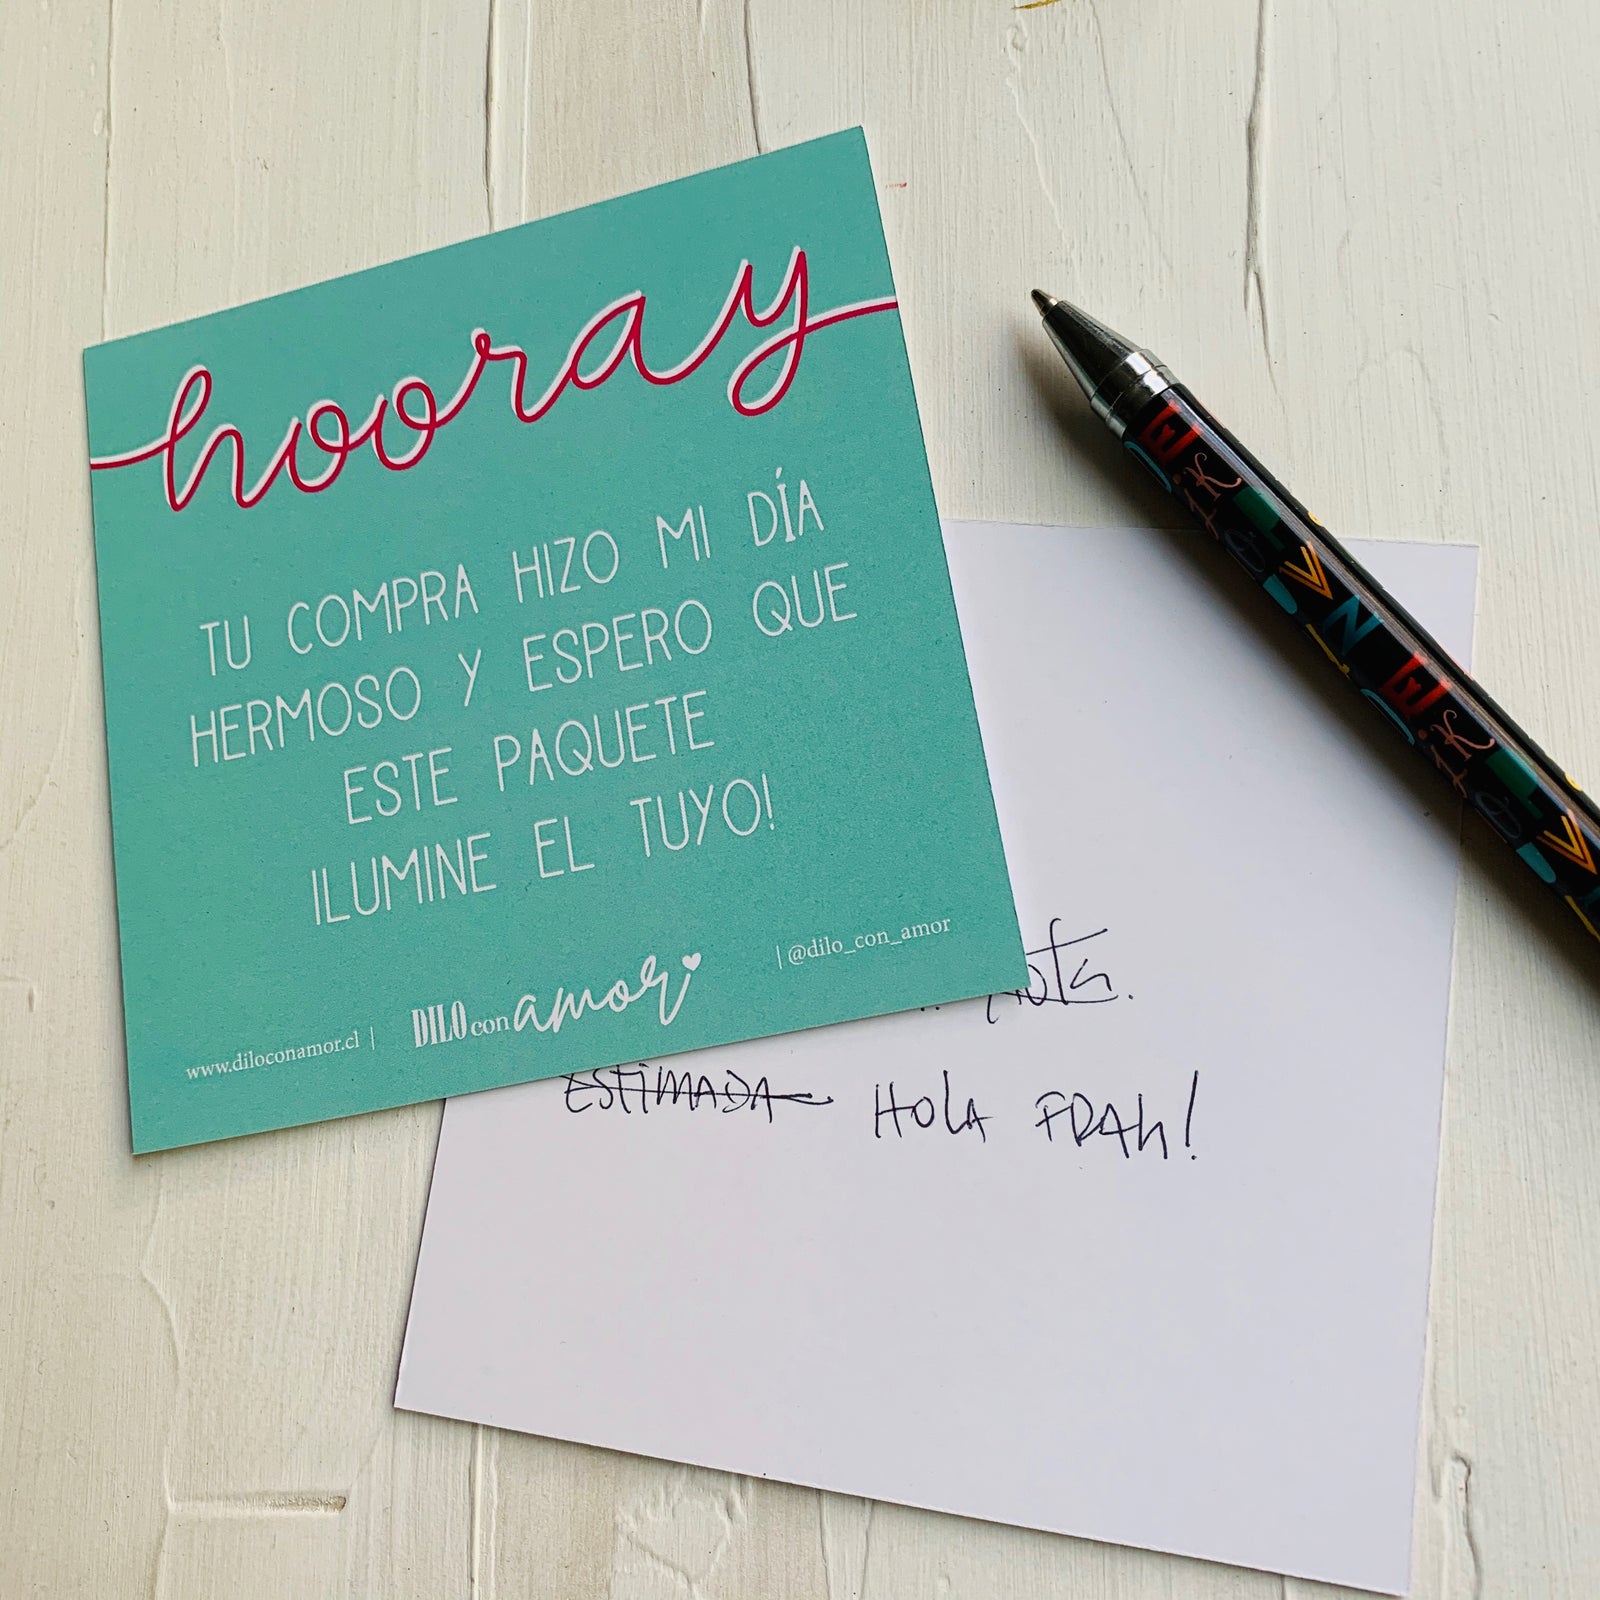 hooray
TU COMPRA HIZO MI DÍA
HERMOSO Y ESPERO QUE
ESTE PAQUETE
ILUMINE EL TUYO!
www.diloconamor.cl | DILO con amor | @dilo_con_amor
ESTIMADA HOLA FRAN!